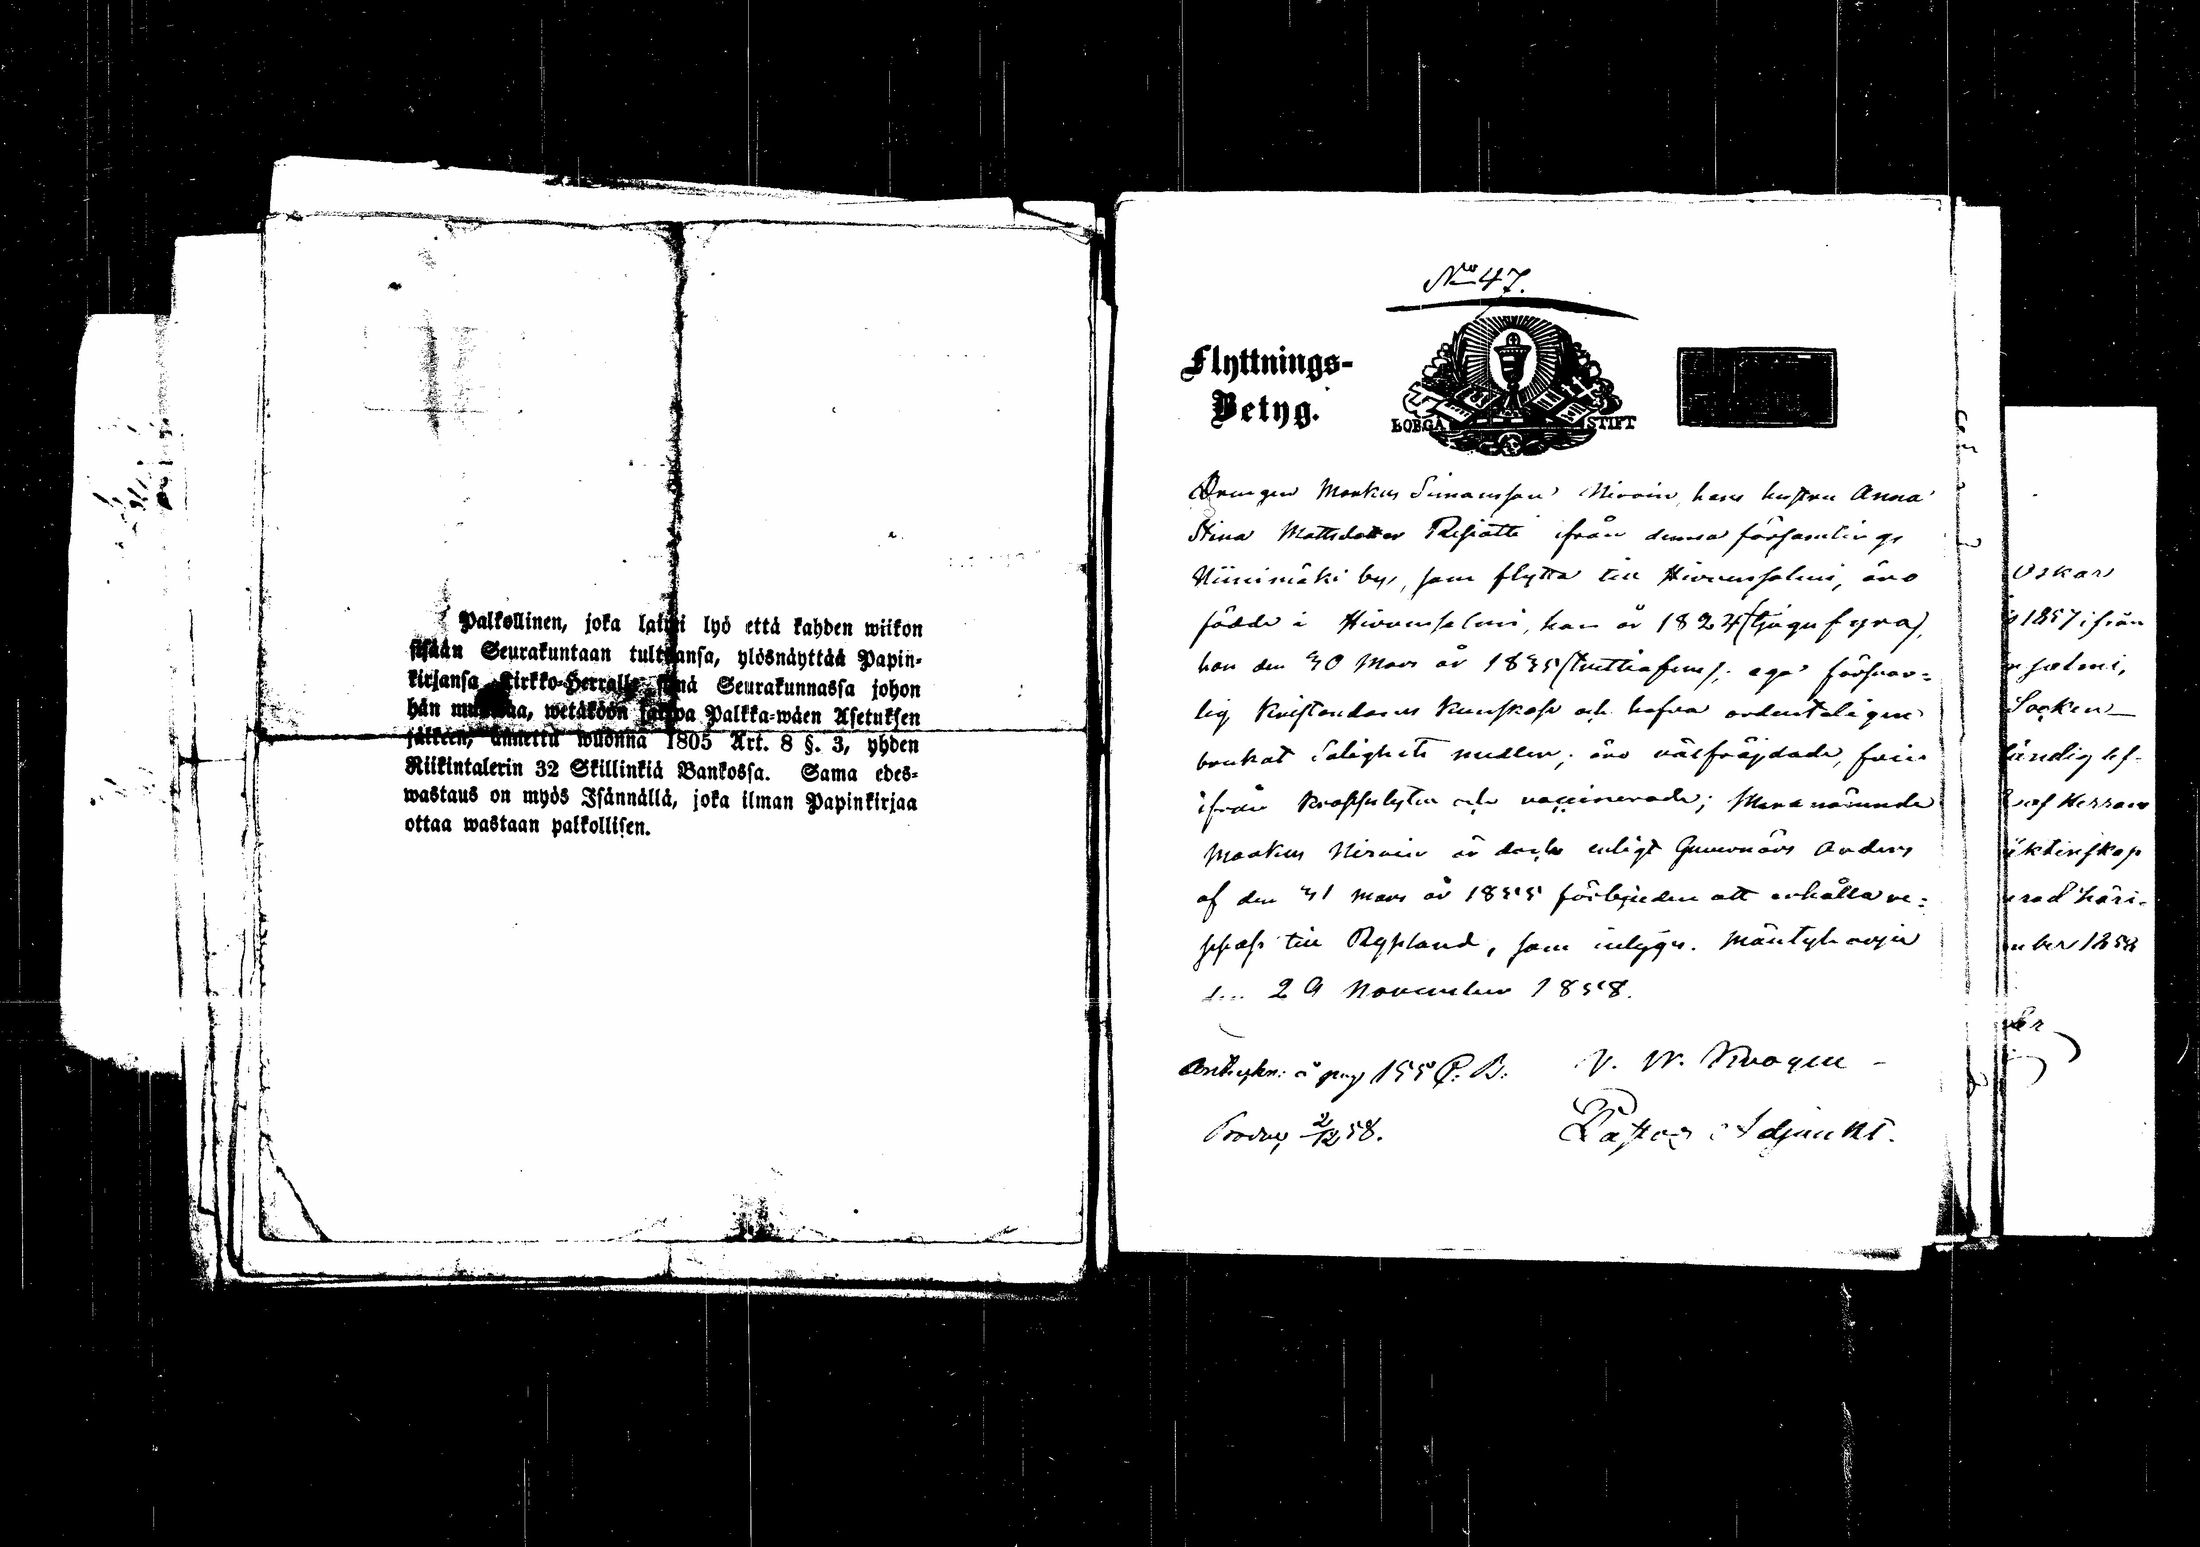 Palkollinen, joka laimi lyö että kahden wiikon
sisään Seurakuntaan tultuansa, ylösnäyttää Papin-
kirjansa Kirkko-Herralle siinä Seurakunnassa johon
hän muuttaa, wetäköön sakkoa Palkka-wäen Asetuksen
jälkeen, annettu wuonna 1805 Art. 8 §. 3, yhden
Riikintalerin 32 Skillinkiä Bankossa. Sama edes-
wastaus on myös Isännällä, joka ilman Papinkirjaa
ottaa wastaan palkollisen.
No 47.
Flyttnings-
Betyg.
BORGÅ STIFT
Drengen Markus Simonsson Hirvin, hans hustru Anna
Stina Mattsdotter ifrån denna församlings
Niinimäki by, som flytta till Hirvensalmi, äro
födde i Hirvensalmi, han år 1824 (tjugufyra),
hon den 30 Mars år 1835 (trettiofem), ega försvar-
lig Kristendoms kunskap och hafva ordentligen
brukat Salighets medlen; äro välfräjdade, frie
ifrån kroppslyten och vaccinerade; Meranämnde
Markus Hirvin är dock enligt Guvernörs Orders
af den 31 Mars år 1855 förbjuden att erhålla re-
spass till Ryssland, som inlyges. Mäntyharju
den 29 November 1858.
pag 155 C. B.
2/12 58.
Pastors Adjunkt.
Oskar
1857 ifrån
salmi,
Socken
ändig
af Herrans
ber 1858